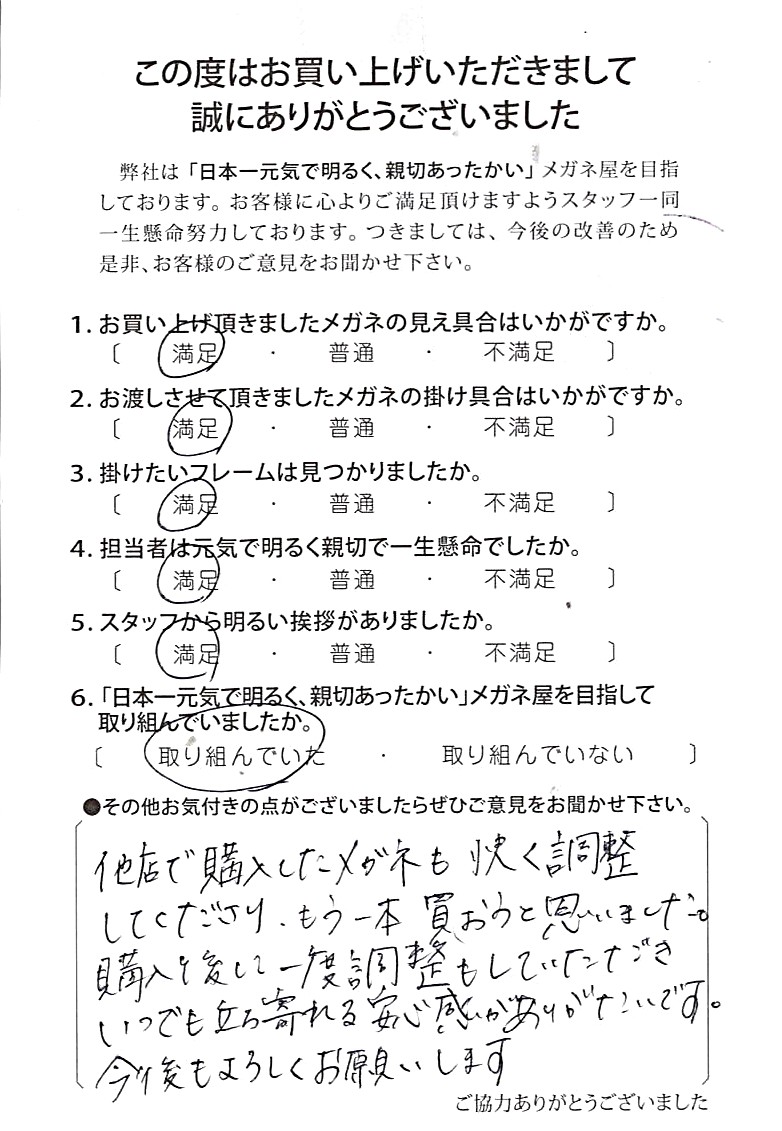 この度はお買い上げいただきまして
誠にありがとうございました
弊社は「日本一元気で明るく、親切あったかい」メガネ屋を目指
しております。お客様に心よりご満足頂けますようスタッフ一同
一生懸命努力しております。つきましては、今後の改善のため
是非、お客様のご意見をお聞かせ下さい。
1. お買い上げ頂きましたメガネの見え具合はいかがですか。
〔 満足 ・ 普通 ・ 不満足 〕
2. お渡しさせて頂きましたメガネの掛け具合はいかがですか。
〔 満足 ・ 普通 ・ 不満足 〕
3. 掛けたいフレームは見つかりましたか。
〔 満足 ・ 普通 ・ 不満足 〕
4. 担当者は元気で明るく親切で一生懸命でしたか。
〔 満足 ・ 普通 ・ 不満足 〕
5. スタッフから明るい挨拶がありましたか。
〔 満足 ・ 普通 ・ 不満足 〕
6. 「日本一元気で明るく、親切あったかい」メガネ屋を目指して
取り組んでいましたか。
〔 取り組んでいた ・ 取り組んでいない 〕
●その他お気付きの点がございましたらぜひご意見をお聞かせ下さい。
他店で購入したメガネも快く調整
してくださり、もう一本買おうと思いました。
購入を後して一度調整もしていただき
いつでも立ち寄れる安心感がありがたいです。
今後もよろしくお願いします
ご協力ありがとうございました